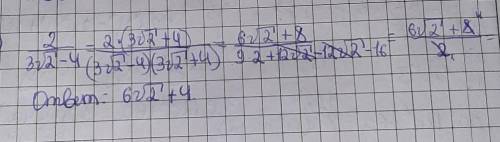 2/(3√2-4) = 2·(3√2+4)/((3√2-4)(3√2+4)) = (6√2+8)/(9·2+12√2-12√2-16) = (6√2+8⁴)/2₁ =
Ответ: 6√2+4